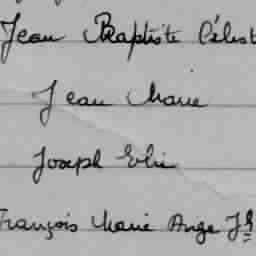 Jean Baptiste Célest
Jean Marie
Joseph Elie
François Marie Ange Jh